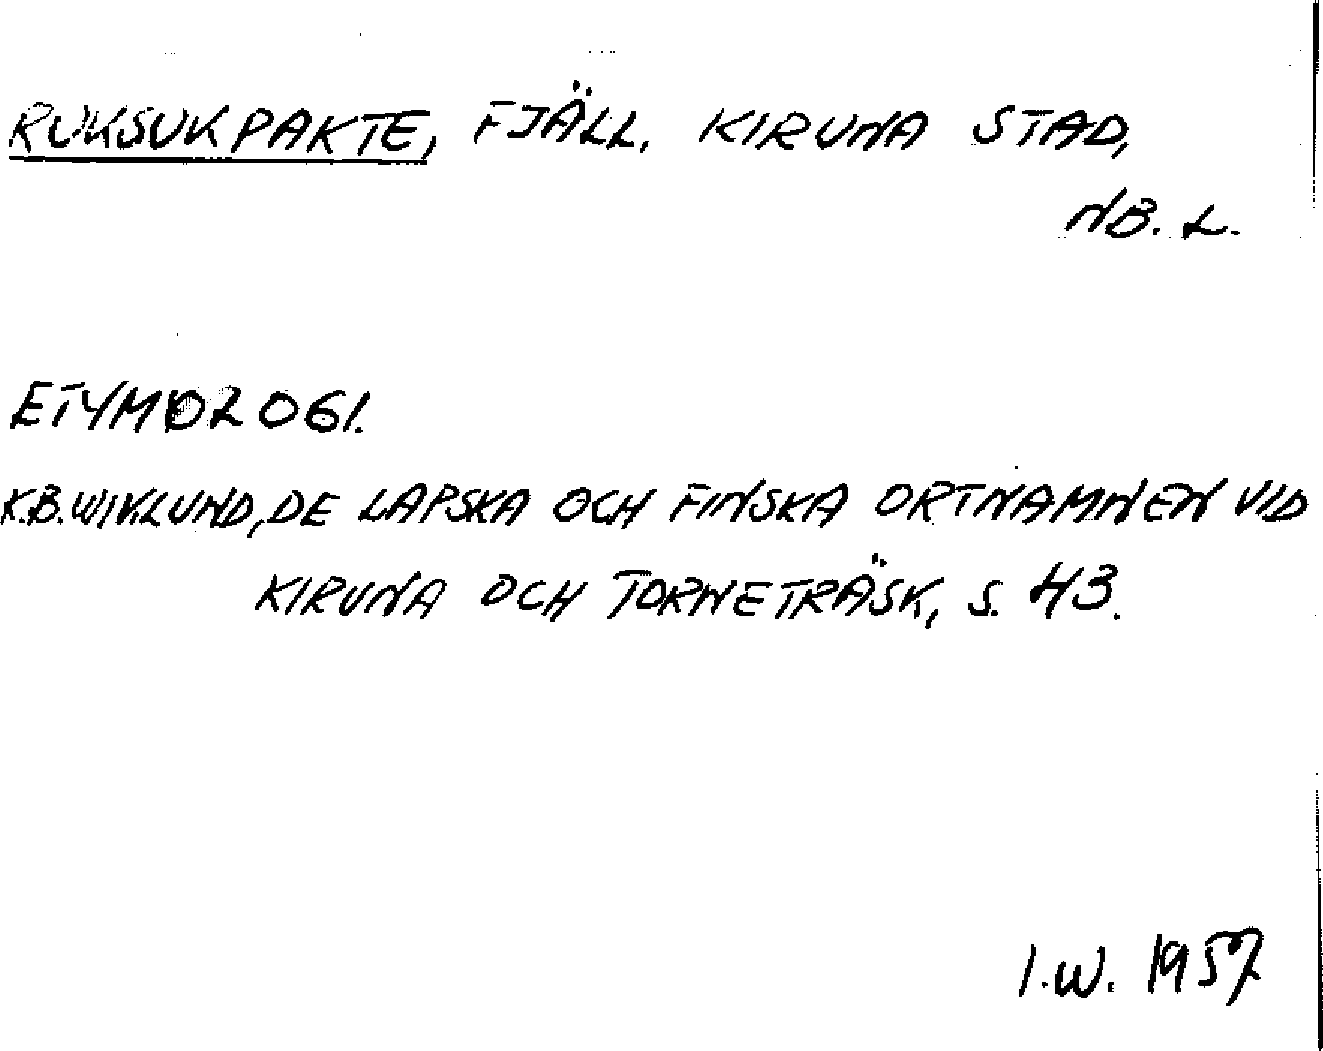 RUKSUKPAKTE, FJÄLL. KIRUNA STAD,
NB. L.
ETYMOLOGI.
K.B. WIKLUND, DE LAPSKA OCH FINSKA ORTNAMNEN VID
KIRUNA OCH TORNETRÄSK, S. 43.
I.W. 1957